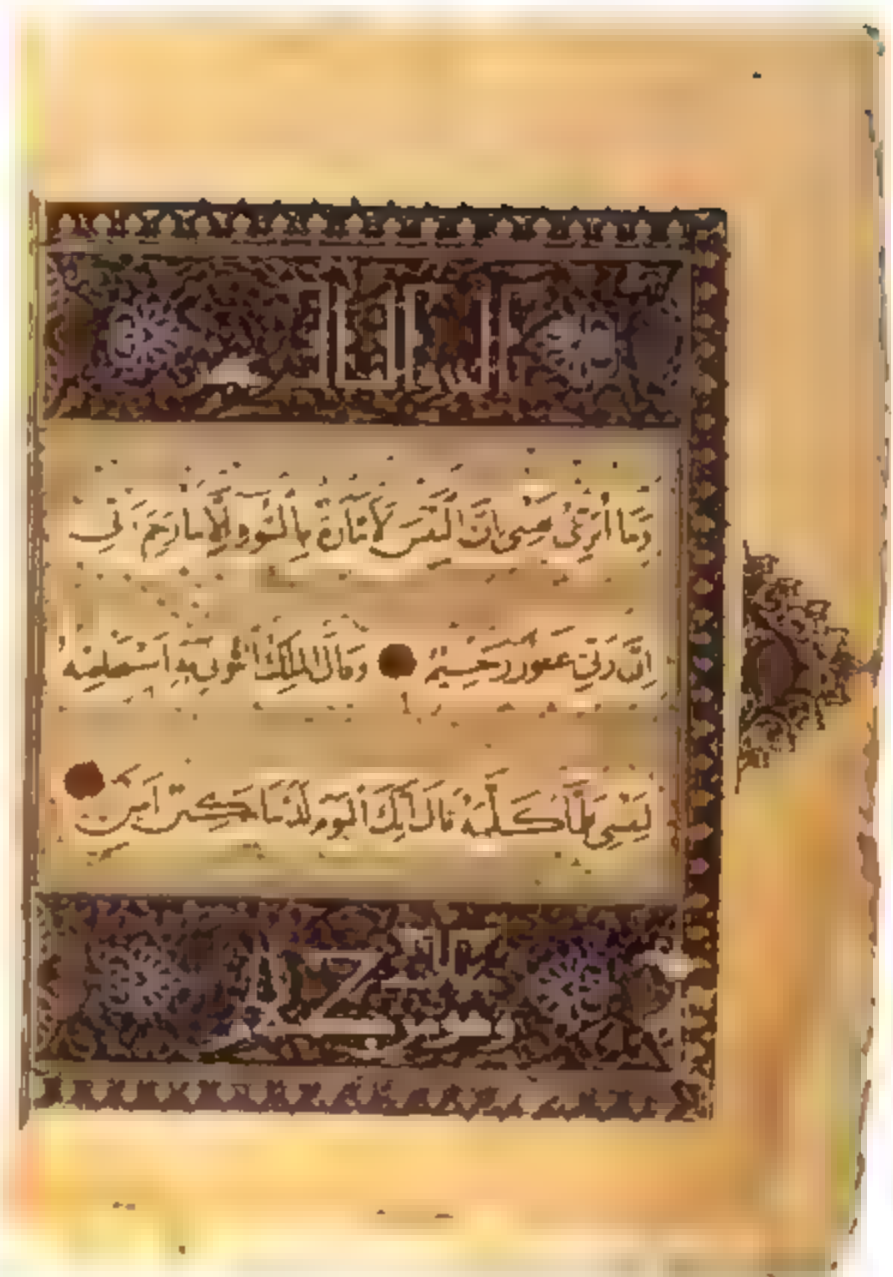 وَمَا أُبَرِّئُ نَفْسِي إِنَّ النَّفْسَ لَأَمَّارَةٌ بِالسُّوءِ إِلَّا مَا رَحِمَ رَبِّي
إِنَّ رَبِّي غَفُورٌ رَحِيمٌ وَقَالَ الْمَلِكُ ائْتُونِي بِهِ أَسْتَخْلِصْهُ
لِنَفْسِي فَلَمَّا كَلَّمَهُ قَالَ إِنَّكَ الْيَوْمَ لَدَيْنَا مَكِينٌ أَمِينٌ